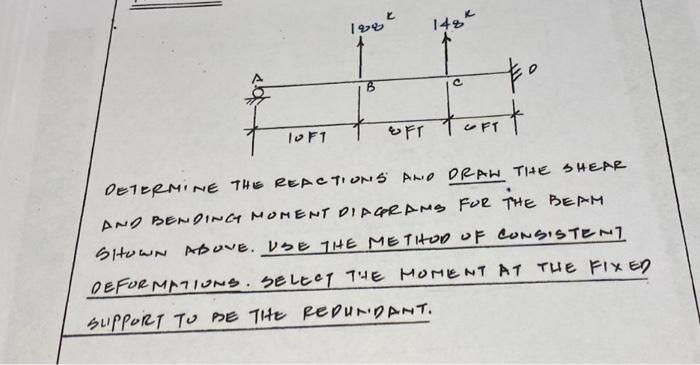 188ᵏ 148ᵏ
A B C D
10 FT 8 FT 6 FT
DETERMINE THE REACTIONS AND DRAW THE SHEAR
AND BENDING MOMENT DIAGRAMS FOR THE BEAM
SHOWN ABOVE. USE THE METHOD OF CONSISTENT
DEFORMATIONS. SELECT THE MOMENT AT THE FIXED
SUPPORT TO BE THE REDUNDANT.